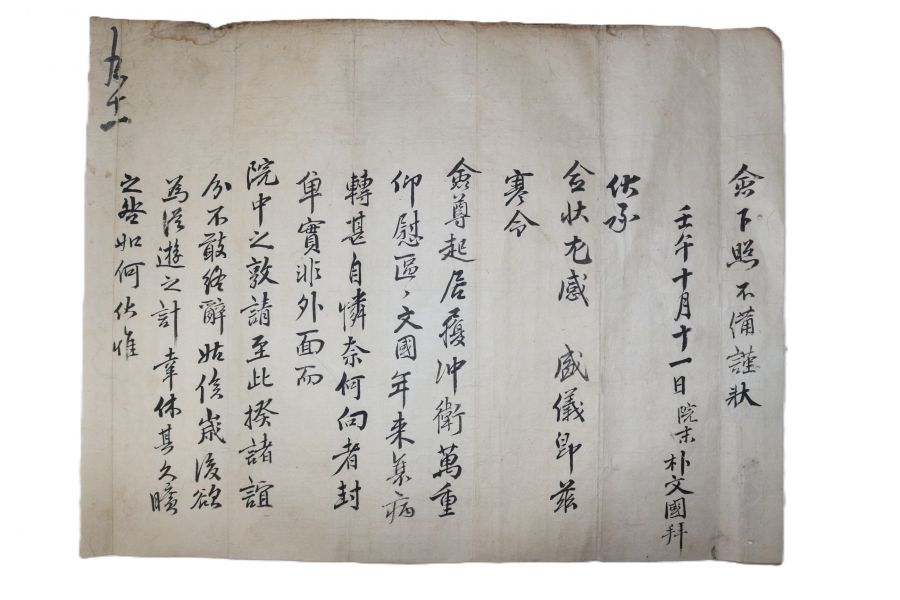 僉下照 不備謹狀
壬午十月十一日 院末 朴文國拜
伏承
僉狀尤感 盛儀卽玆
寒令
僉尊起居履冲衛萬重
仰慰區〻文國年來集病
轉甚自憐奈何向者封
單實非外面而
院中之敦請至此揆諸誼
分不敢終辭姑俟歲後欲
為從遊之計 幸休其久曠
之咎如何伏惟